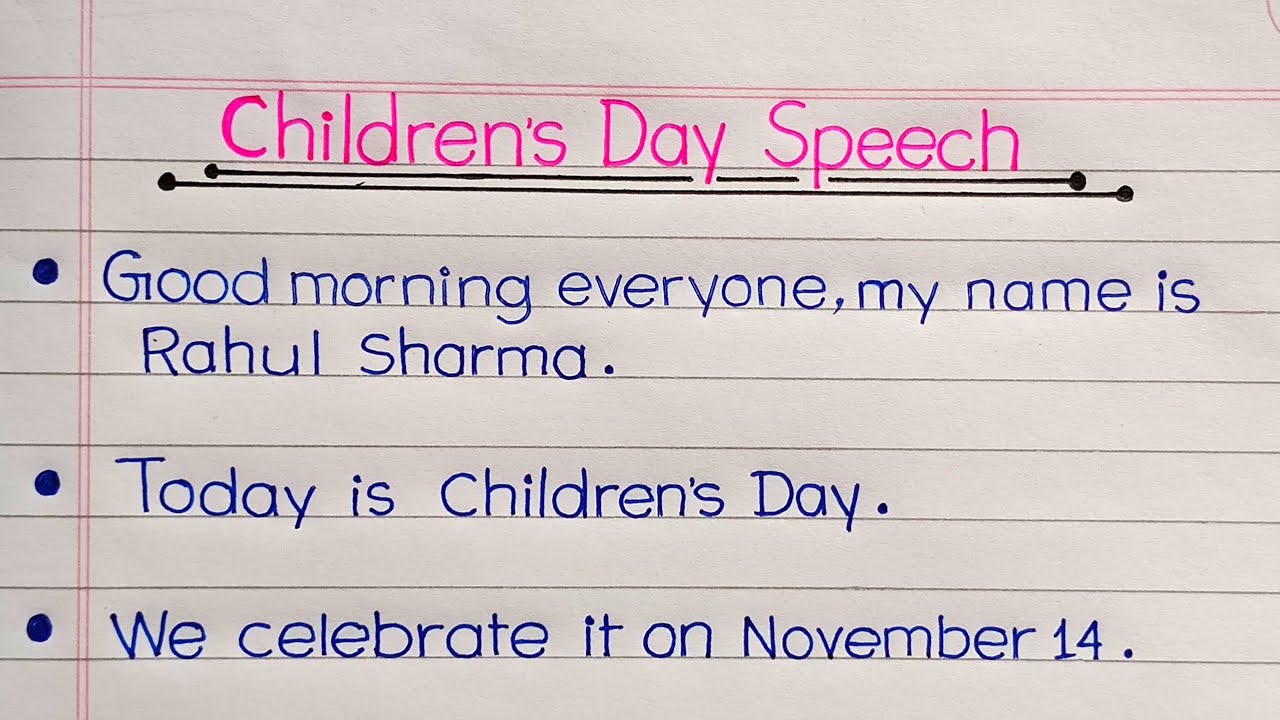 Children's Day Speech
• Good morning everyone, my name is
Rahul Sharma.
• Today is Children's Day.
• We celebrate it on November 14.